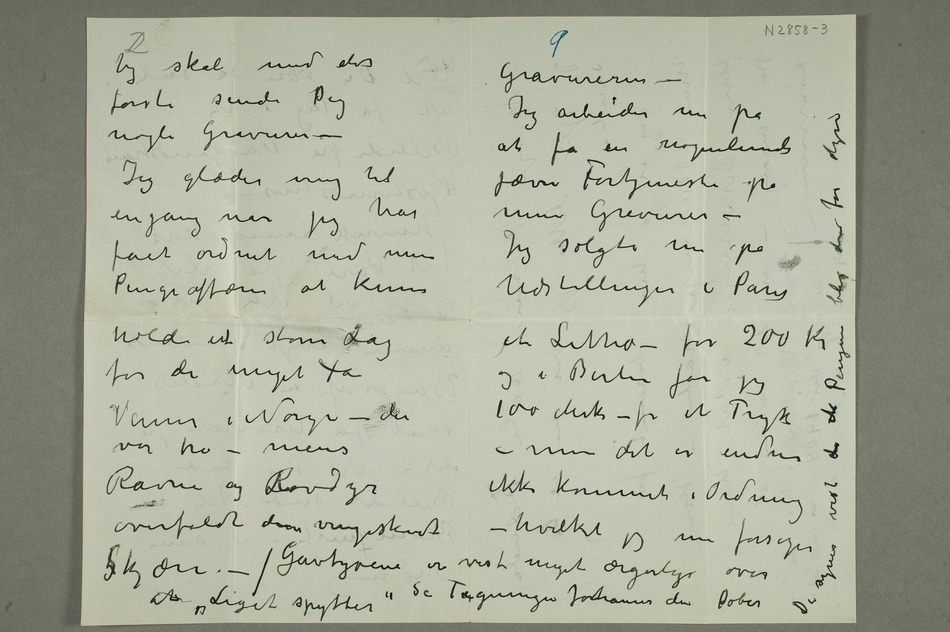 N2858-3
2
Jeg skal med det
første sende Dig
nogle Gravurer —
Jeg glæder mig til
engang når jeg har
fået ordnet med mine
Pengeaffærer at kunne
holde et stort Lag
for de meget få
Venner i Norge — der
var tro — mens
Ravne og Rovdyr
overfaldt den vingeskudt
Skjære. — / Gavtyvene er vist meget ærgerlige over
at „Liget spytter" Se Tegningen Johannes den Døber
9
Gravurerne —
Jeg arbeider nu på
at få en nogenlunde
jævn Fortjeneste på
mine Gravurer —
Jeg solgte nu på
Udstillingen i Paris
et Litho — for 200 Kr
og i Berlin får jeg
100 Mk — for et Tryk
— men det er endnu
ikke kommet i Ordning
— hvilket jeg nu forsøger
De synes vist de Pengene blev dem for dyre